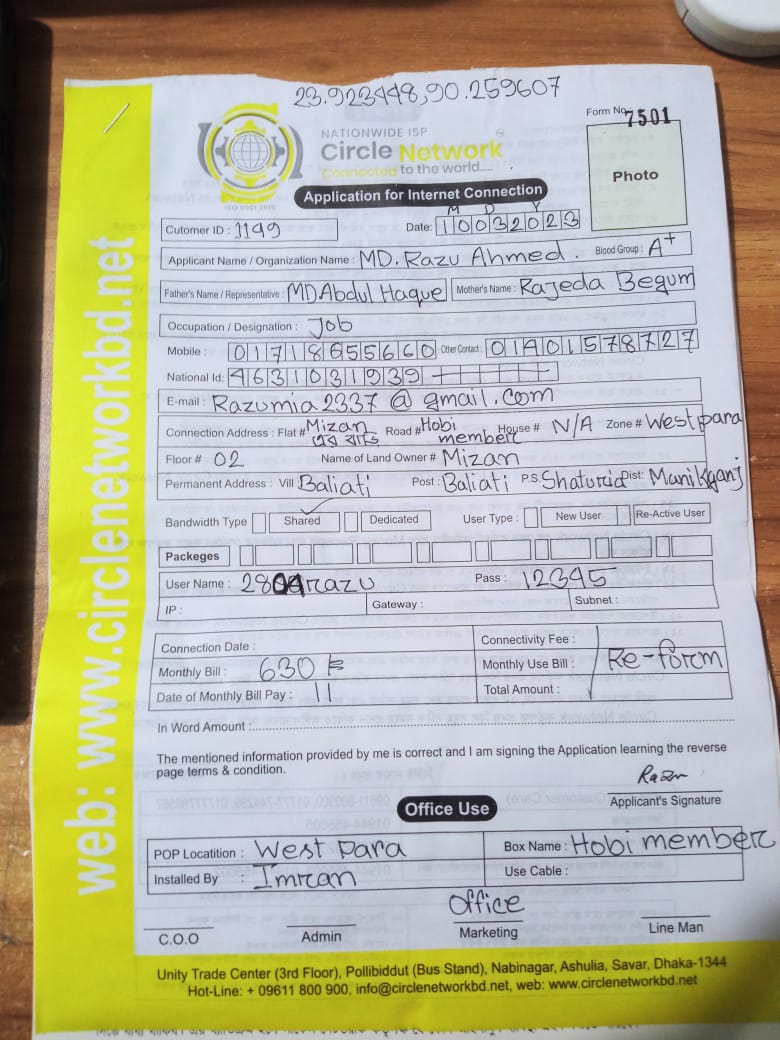 23.923448,90.259607
Form No. 7501
NATIONWIDE ISP
Circle Network
Connected to the world.....
ISO 9001:2015
Photo
Application for Internet Connection
M D Y
Cutomer ID : 1199 Date: 10032023
Applicant Name / Organization Name : MD. Razu Ahmed . Blood Group : A+
Father's Name / Representative : MD Abdul Haque Mother's Name : Rajeda Begum
Occupation / Designation : Job
Mobile : 01718655660 Other Contact : 01401578727
National Id: 4631031939
E-mail : Razumia2337@gmail.com
Connection Address : Flat # Mizan এর বাড়ি Road # Hobi member House # N/A Zone # West para
Floor # 02 Name of Land Owner # Mizan
Permanent Address : Vill Baliati Post : Baliati P.S. Shaturia Dist: Manikganj
Bandwidth Type Shared Dedicated User Type : New User Re-Active User
Packeges
User Name : 2804razu Pass : 12345
IP : Gateway : Subnet :
Connection Date : Connectivity Fee :
Monthly Bill : 630 ৳ Monthly Use Bill : Re-form
Date of Monthly Bill Pay : 11 Total Amount :
In Word Amount :
The mentioned information provided by me is correct and I am signing the Application learning the reverse
page terms & condition.
Razu
Applicant's Signature
Office Use
POP Locatition : West Para Box Name : Hobi member
Installed By : Imran Use Cable :
Office
C.O.O Admin Marketing Line Man
Unity Trade Center (3rd Floor), Pollibiddut (Bus Stand), Nabinagar, Ashulia, Savar, Dhaka-1344
Hot-Line: + 09611 800 900, info@circlenetworkbd.net, web: www.circlenetworkbd.net
web: www.circlenetworkbd.net